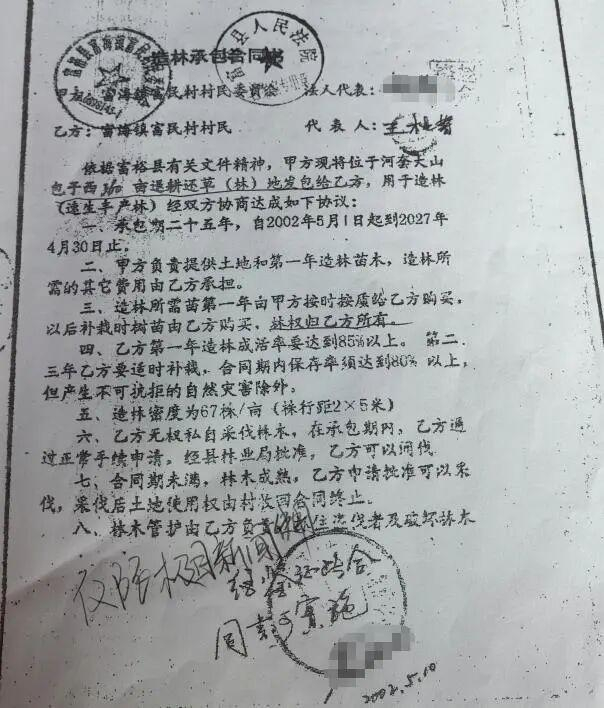 造林承包合同
富裕县富海镇富民村村民委员会
富裕县人民法院
甲方：富海镇富民村村民委员会 法人代表：
乙方：富海镇富民村村民 代表人：
依据富裕县有关文件精神，甲方现将位于河套大山
包子西360亩退耕还草（林）地发包给乙方，用于造林
（速生丰产林）经双方协商达成如下协议：
一、承包期二十五年，自2002年5月1日起到2027年
4月30日止。
二、甲方负责提供土地和第一年造林苗木，造林所
需的其它费用由乙方承担。
三、造林所需苗第一年由甲方按时按质给乙方购买，
以后补栽时树苗由乙方购买，林权归乙方所有。
四、乙方第一年造林成活率要达到85%以上。第二、
三年乙方要适时补栽，合同期内保存率须达到80%以上，
但产生不可抗拒的自然灾害除外。
五、造林密度为67株/亩（株行距2×5米）
六、乙方无权私自采伐林木，在承包期内，乙方通
过正常手续申请，经县林业局批准，乙方可以间伐
七、合同期未满，林木成熟，乙方申请批准可以采
伐，采伐后土地使用权由村收回合同终止。
八、林木管护由乙方负责 住盗伐者及破坏林木
仅限极目新闻
同意实施
2002.5.10